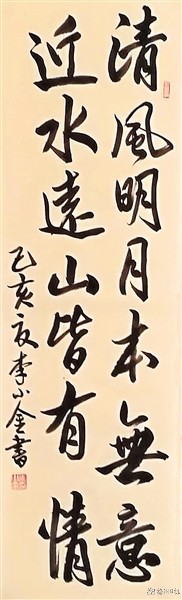 清風明月本無意
近水遠山皆有情
乙亥夏李小金書